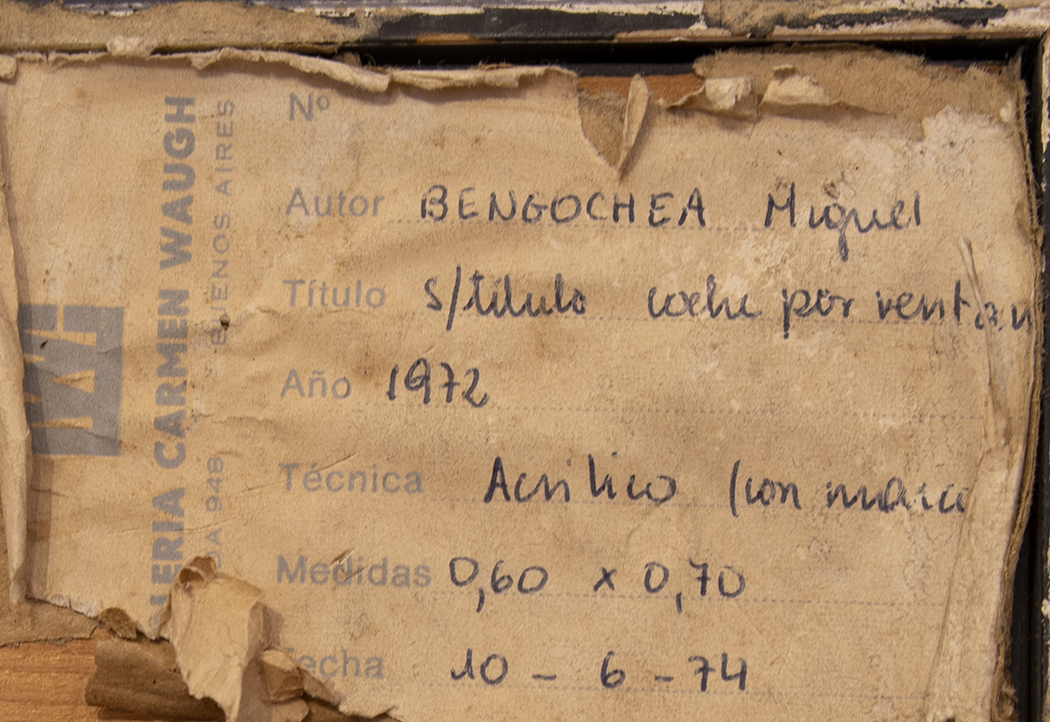 Nº
Autor BENGOCHEA Miguel
Título s/título coche por ventan
Año 1972
Técnica Acrilico (con marco
Medidas 0,60 x 0,70
echa 10 - 6 - 74
LERIA CARMEN WAUGH
DA 948 BUENOS AIRES